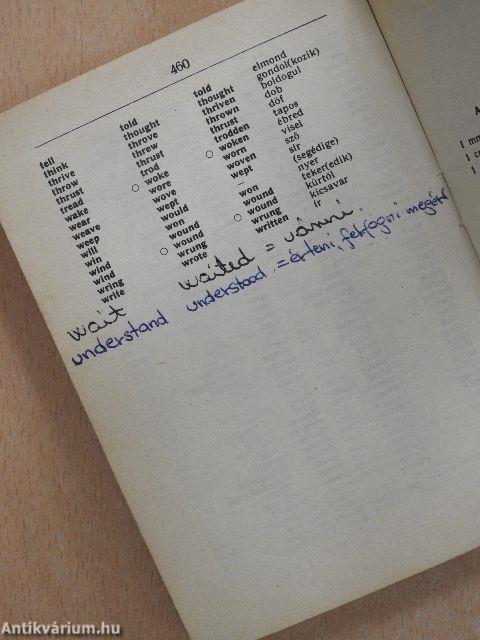 460
tell told told elmond
think thought thought gondol(kozik)
thrive throve thriven boldogul
throw threw thrown dob
thrust thrust thrust döf
tread trod trodden tapos
wake ○ woke ○ woken ébred
wear wore worn visel
weave wove woven sző
weep wept wept sír
will would – (segédige)
win won won nyer
wind wound wound teker(edik)
wind ○ wound ○ wound kürtöl
wring wrung wrung kicsavar
write wrote written ír
wait waited = várni.
understand understood = érteni, felfogni megért
A
1 m
1 c
1
Antikvárium.hu